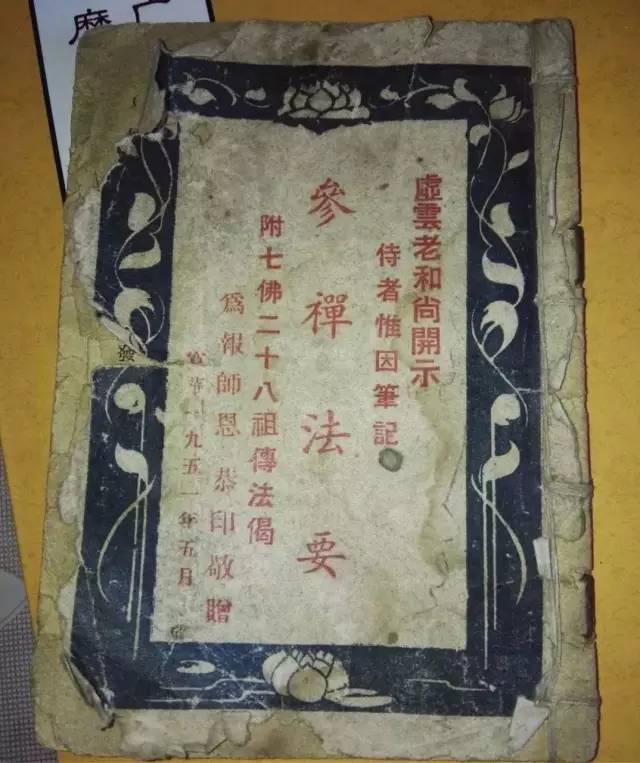 虛雲老和尚開示
侍者惟因筆記
參禪法要
附七佛二十八祖傳法偈
爲報師恩恭印敬贈
華一九五一年五月
發
磨